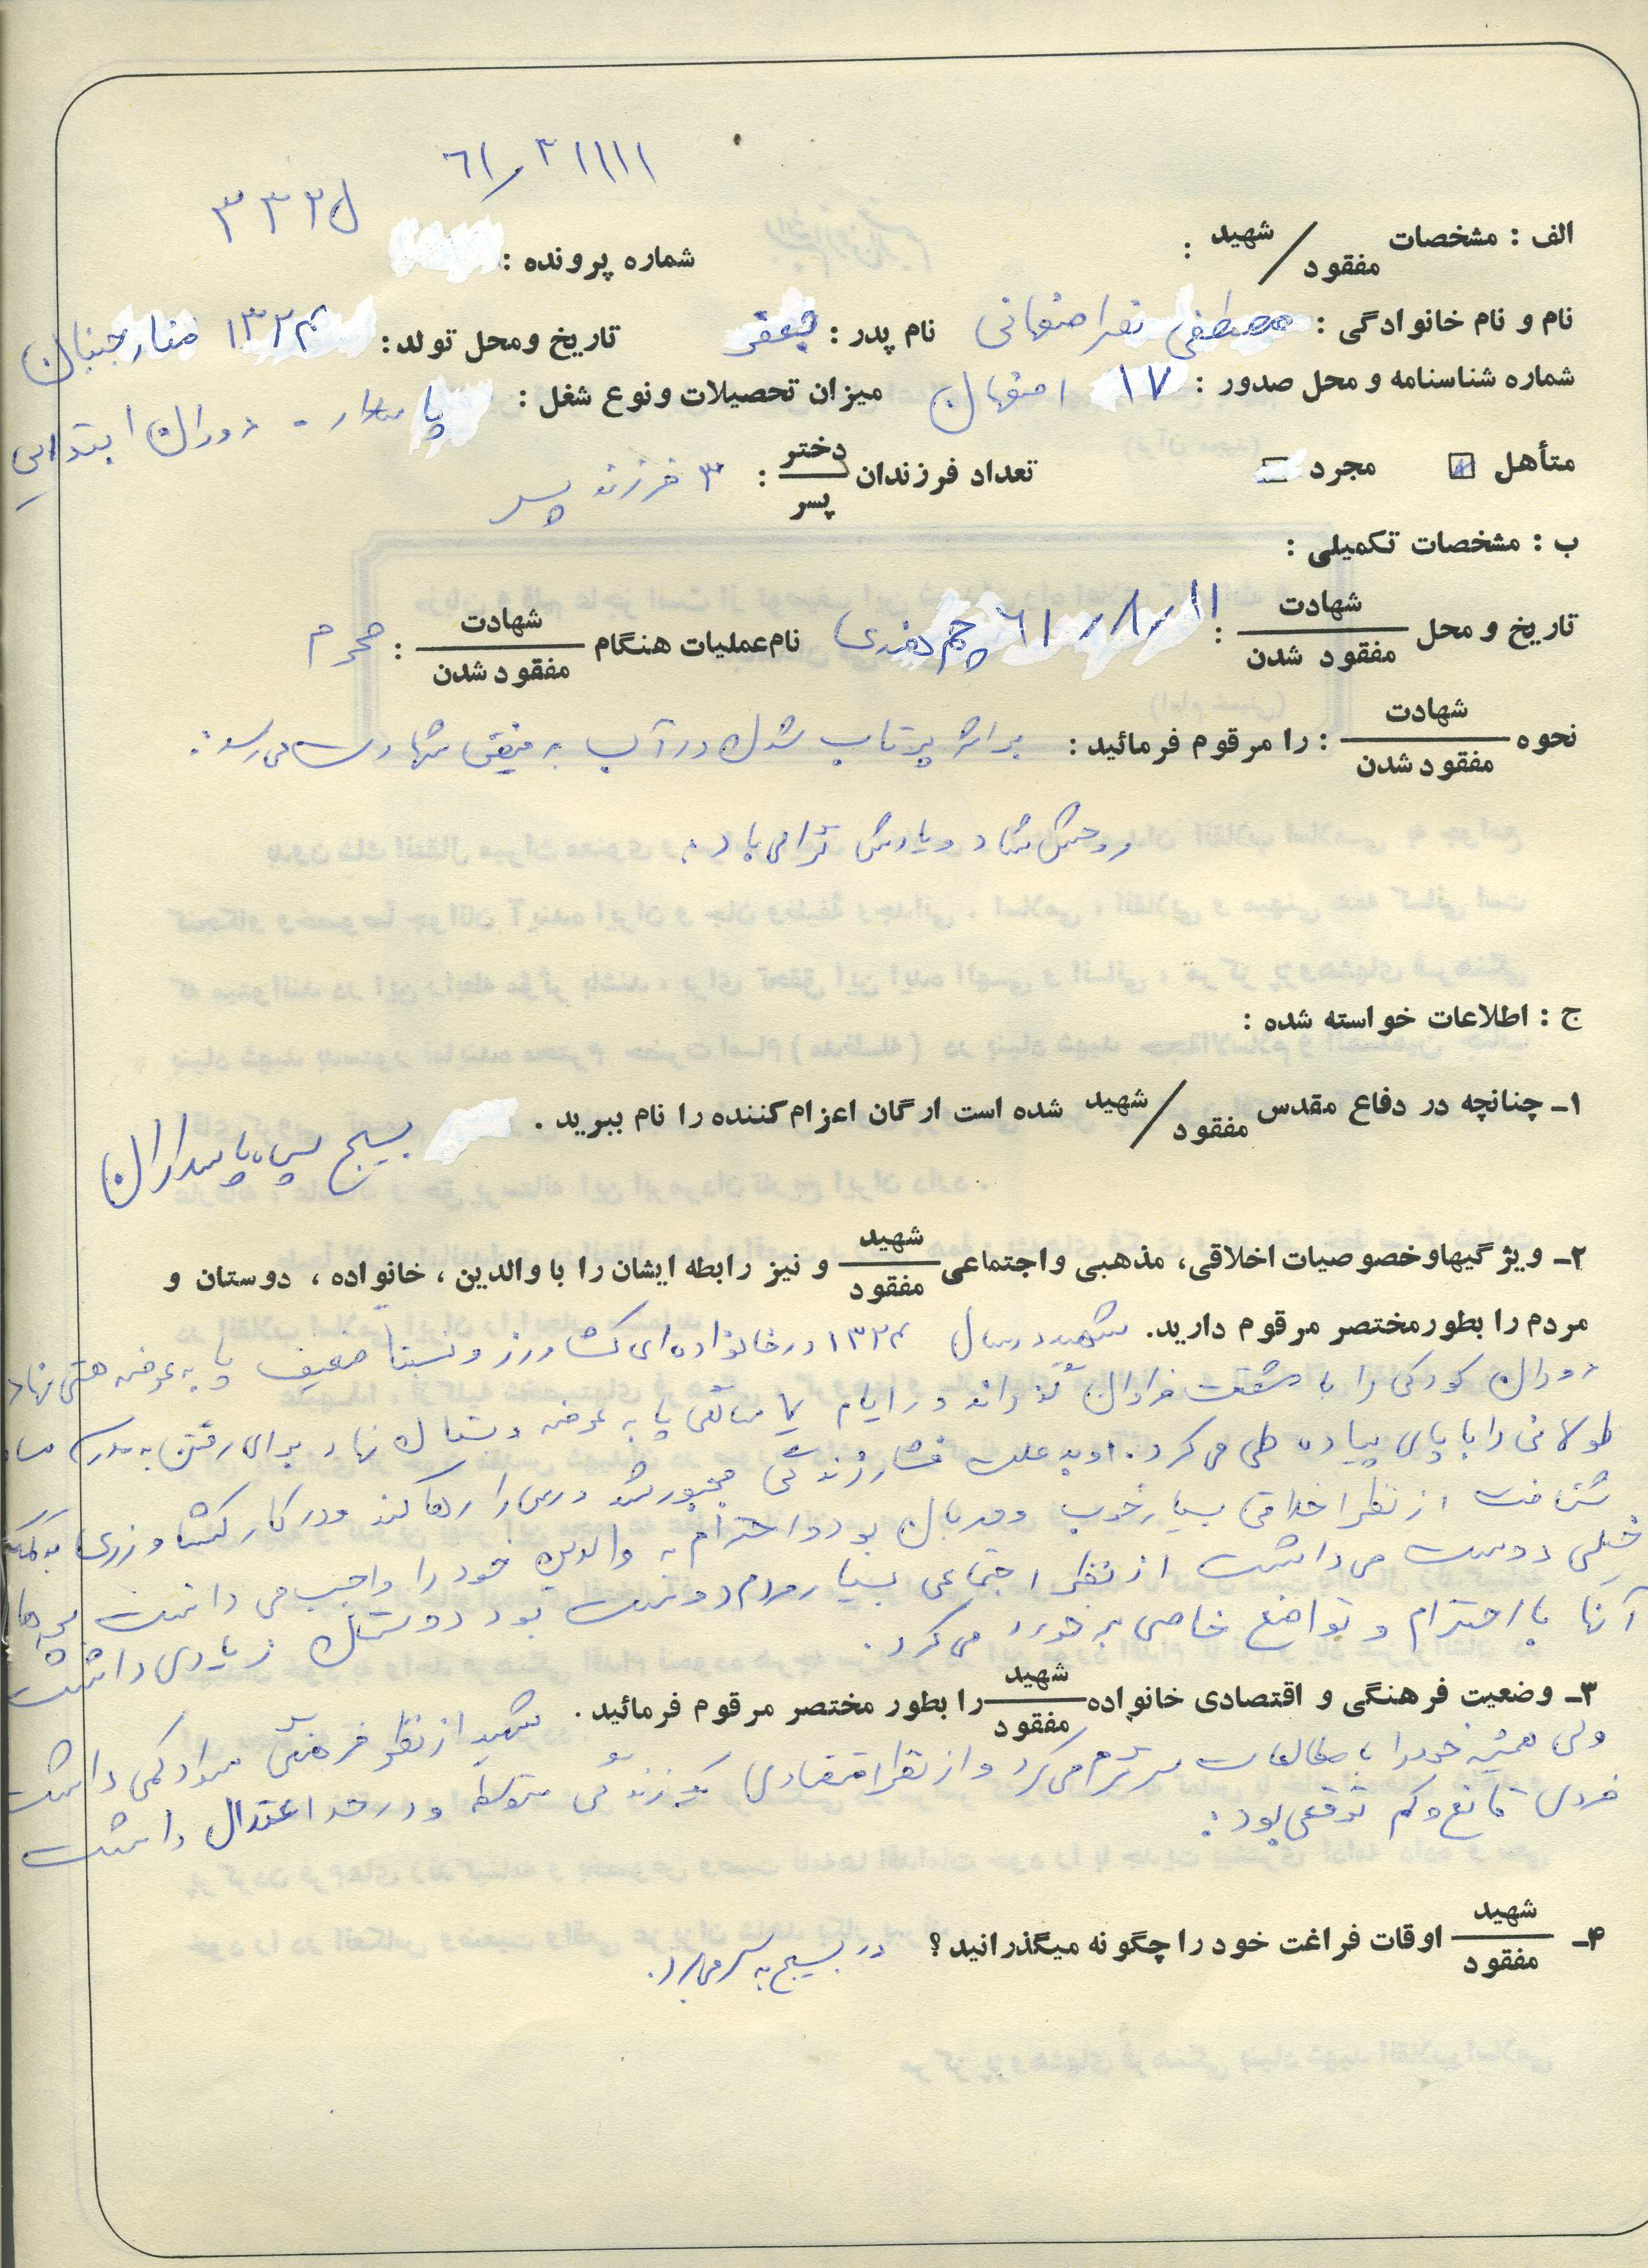 ۶۱/۲۱۱۱۱
۳۳۲۵
الف : مشخصات شهید / مفقود :
شماره پرونده :
نام و نام خانوادگی : مصطفی نصراصفهانی نام پدر : جعفر تاریخ ومحل تولد : ۱۳۲۴
شماره شناسنامه و محل صدور : ۱۷ اصفهان میزان تحصیلات ونوع شغل : پاسدار - دوران ابتدایی
متأهل مجرد تعداد فرزندان دختر / پسر : ۳ فرزند پسر
ب : مشخصات تکمیلی :
تاریخ و محل شهادت / مفقود شدن : ۶۱/۸/۱۱ چم هندی نام عملیات هنگام شهادت / مفقود شدن : محرم
نحوه شهادت / مفقود شدن : را مرقوم فرمائید : بر اثر پرتاب شدن در آب به فیض شهادت می رسد.
روحش شاد و یادش گرامی باد.
ج : اطلاعات خواسته شده :
۱ـ چنانچه در دفاع مقدس شهید / مفقود شده است ارگان اعزام کننده را نام ببرید . بسیج سپاه پاسداران
۲ـ ویژگیها و خصوصیات اخلاقی، مذهبی و اجتماعی شهید / مفقود و نیز رابطه ایشان را با والدین ، خانواده ، دوستان و
مردم را بطور مختصر مرقوم دارید. شهید در سال ۱۳۲۴ در خانواده ای کشاورز و نسبتا ضعیف پا به عرصه هستی نهاد
دوران کودکی را با مشقت فراوان گذراند و در ایام ۷ سالگی پا به عرصه دبستان نهاد برای رفتن به مدرسه
طولانی را با پای پیاده طی می کرد. او به علت فشار زندگی مجبور شد درس را رها کند و در کار کشاورزی به کمک
شتافت از نظر اخلاقی بسیار خوب و مهربان بود و احترام به والدین خود را واجب می دانست بچه ها
خیلی دوست می داشت از نظر اجتماعی بسیار مردم دوست بود دوستان زیادی داشت
آنها با احترام و تواضع خاصی برخورد می کرد.
۳ـ وضعیت فرهنگی و اقتصادی خانواده شهید / مفقود را بطور مختصر مرقوم فرمائید . شهید از نظر فرهنگی سواد کمی داشت
ولی همیشه خود را با مطالعات سرگرم می کرد و از نظر اقتصادی زندگی متوسط و در حد اعتدال داشت
فردی قانع و کم توقعی بود.
۴ـ شهید / مفقود اوقات فراغت خود را چگونه میگذرانید ؟ در بسیج به سر می برد.